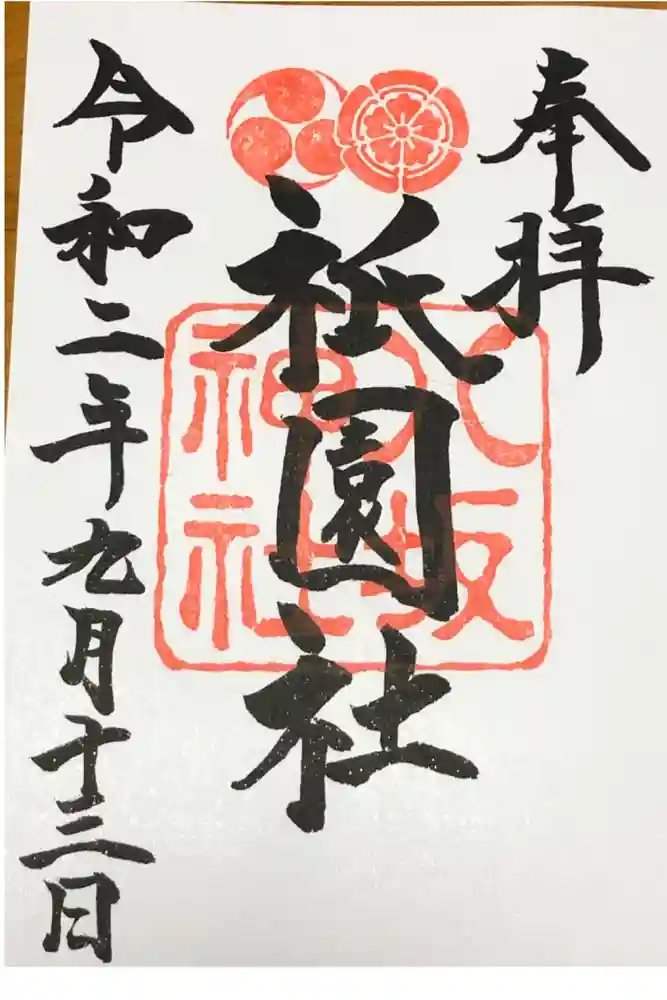 奉拝
祇園社
八坂神社
令和二年九月十三日